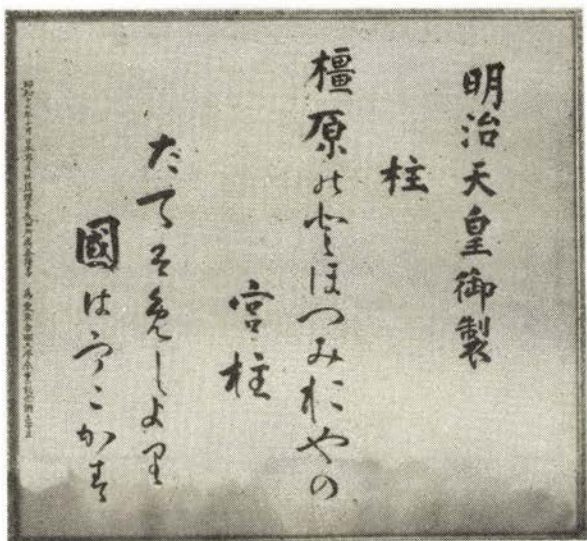 明治天皇御製
柱
橿原のとほつみおやの
宮柱
たてそめしより
國はうこかす